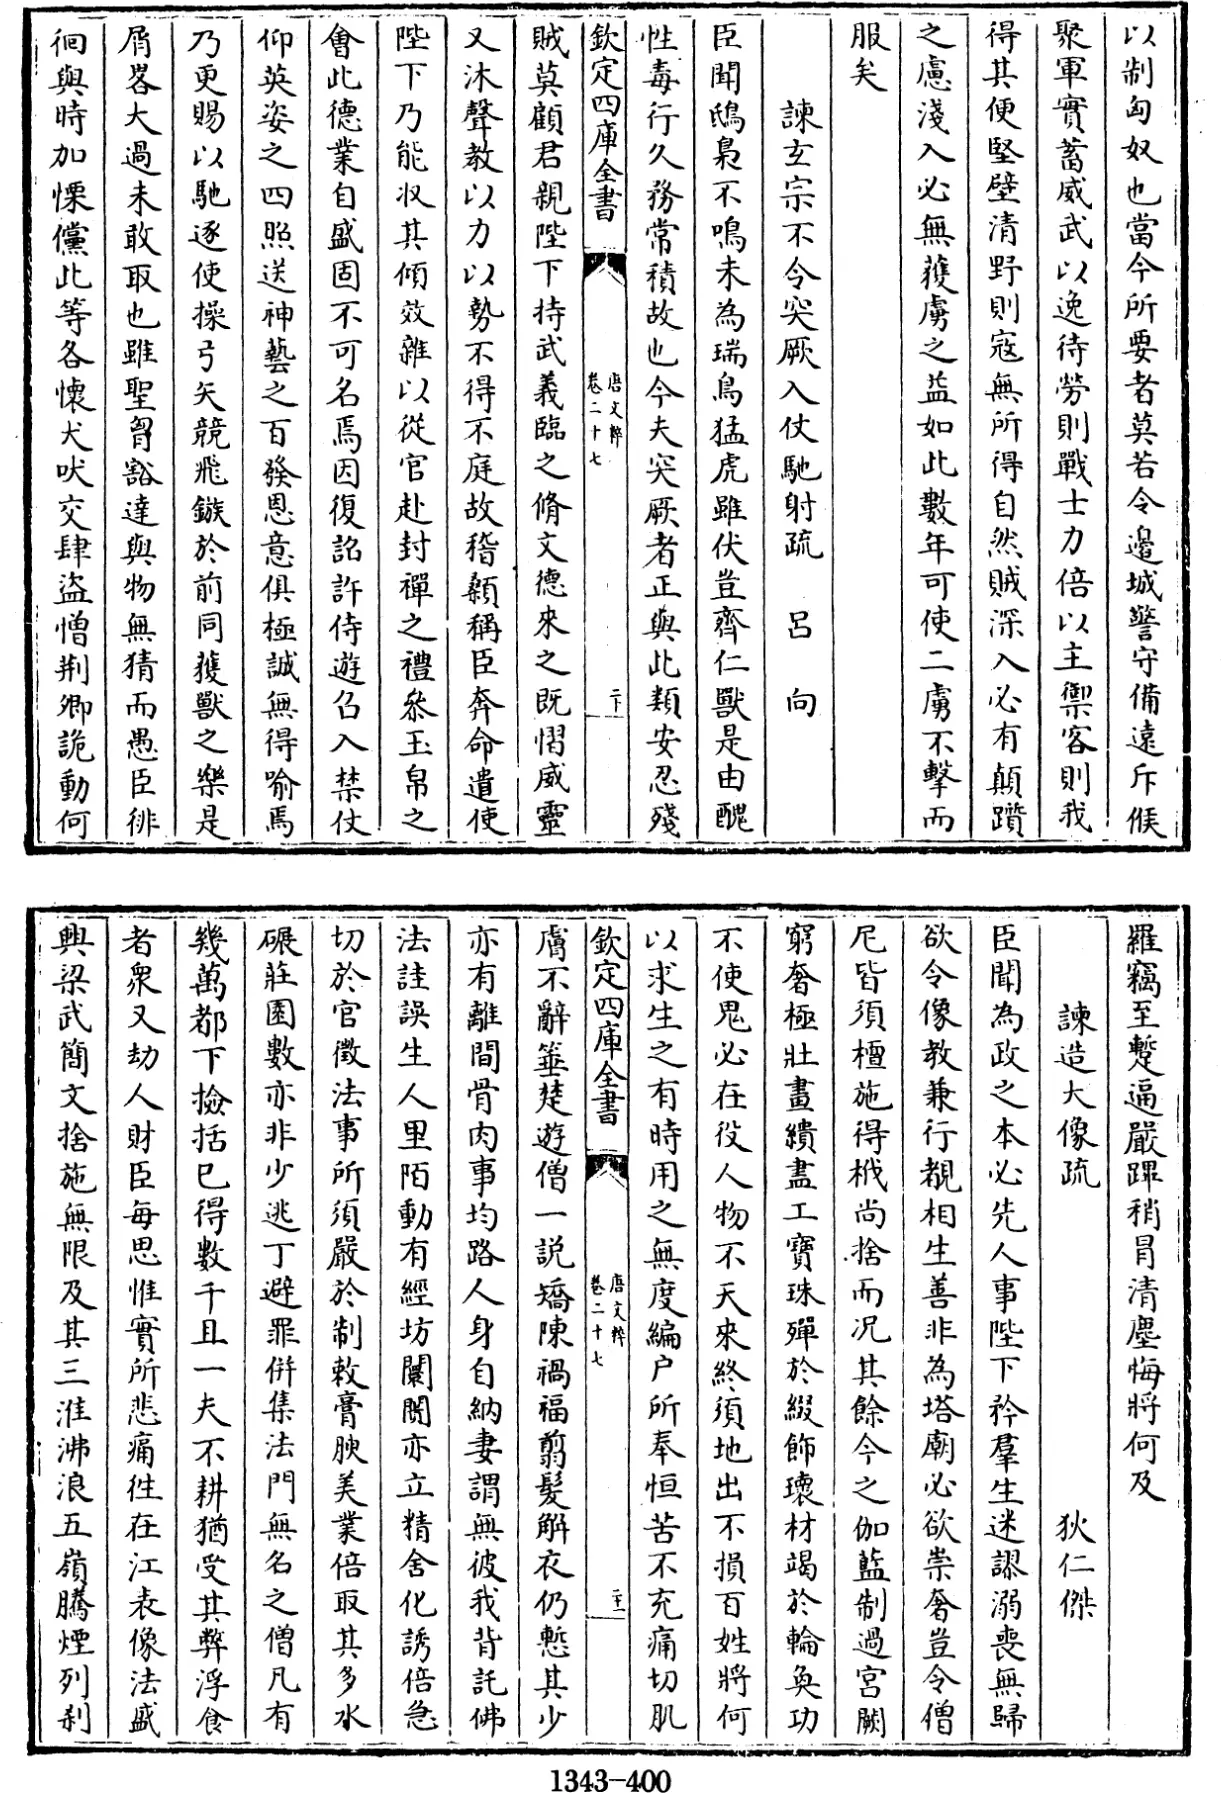 以制匈奴也當今所要者莫若令邉城警守備逺斥候
聚軍實蓄威武以逸待勞則戰士力倍以主禦客則我
得其便堅壁清野則寇無所得自然賊深入必有顛躓
之慮淺入必無獲虜之益如此數年可使二虜不擊而
服矣
諫玄宗不令突厥入仗馳射疏 吕向
臣聞鴟梟不鳴未為瑞鳥猛虎雖伏豈齊仁獸是由醜
性毒行久務常積故也今夫突厥者正與此類安忍殘
欽定四庫全書 唐文粹 卷二十七 二十
賊莫顧君親陛下持武義臨之脩文德來之既慴威靈
又沐聲教以力以勢不得不庭故稽顙稱臣奔命遣使
陛下乃能收其傾效雜以從官赴封禪之禮叅玉帛之
㑹此德業自盛固不可名焉因復詔許侍遊召入禁仗
仰英姿之四照送神藝之百發恩意俱極誠無得喻焉
乃更賜以馳逐使操弓矢競飛鏃於前同獲獸之樂是
屑畧大過未敢取也雖聖胷豁達與物無猜而愚臣徘
徊與時加慄儻此等各懷犬吠交肆盜憎荆卿詭動何
羅竊至蹔逼嚴蹕稍冒清塵悔將何及
諫造大像疏 狄仁傑
臣聞為政之本必先人事陛下矜羣生迷謬溺喪無歸
欲令像教兼行覩相生善非為塔廟必欲崇奢豈令僧
尼皆須檀施得栰尚捨而况其餘今之伽藍制過宫闕
窮奢極壯畫繢盡工寳珠殫於綴飾瓌材竭於輪奐功
不使鬼必在役人物不天來終須地出不損百姓將何
以求生之有時用之無度編户所奉恒苦不充痛切肌
欽定四庫全書 唐文粹 卷二十七 二十一
膚不辭箠楚遊僧一説矯陳禍福翦髮解衣仍慙其少
亦有離間骨肉事均路人身自納妻謂無彼我皆託佛
法詿誤生人里陌動有經坊闤闠亦立精舍化誘倍急
切於官徴法事所須嚴於制敕膏腴美業倍取其多水
碾莊園數亦非少逃丁避罪併集法門無名之僧凡有
幾萬都下撿括巳得數千且一夫不耕猶受其弊浮食
者衆又劫人財臣每思惟實所悲痛徃在江表像法盛
興梁武簡文捨施無限及其三淮沸浪五嶺騰煙列刹
1343-400